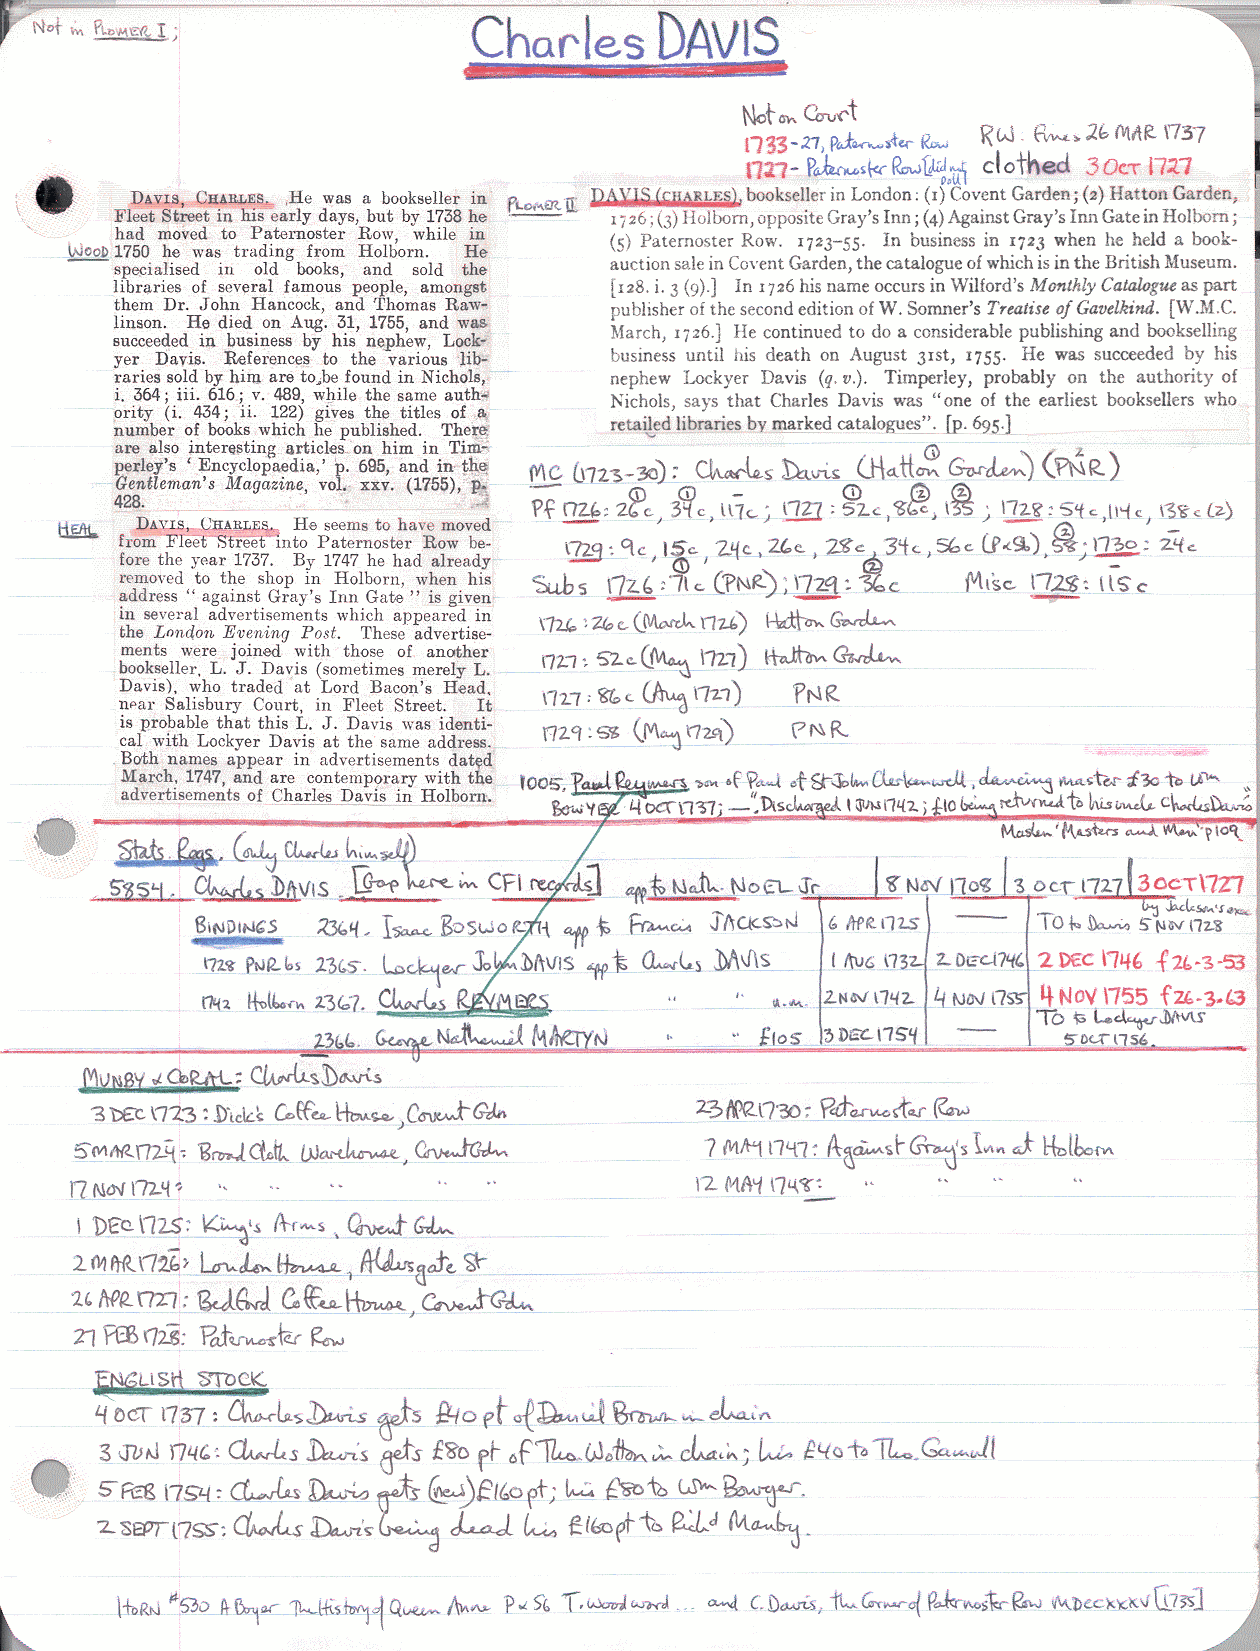 Not in PLOMER I;
Charles DAVIS
Not on Court
1733-27, Paternoster Row
RW. Fines 26 MAR 1737
1727 - Paternoster Row [did not poll]
clothed 3 OCT 1727
WOOD
DAVIS, CHARLES. He was a bookseller in
Fleet Street in his early days, but by 1738 he
had moved to Paternoster Row, while in
1750 he was trading from Holborn. He
specialised in old books, and sold the
libraries of several famous people, amongst
them Dr. John Hancock, and Thomas Raw-
linson. He died on Aug. 31, 1755, and was
succeeded in business by his nephew, Lock-
yer Davis. References to the various lib-
raries sold by him are to be found in Nichols,
i. 364; iii. 616; v. 489, while the same auth-
ority (i. 434; ii. 122) gives the titles of a
number of books which he published. There
are also interesting articles on him in Tim-
perley's 'Encyclopaedia,' p. 695, and in the
Gentleman's Magazine, vol. xxv. (1755), p.
428.
HEAL
DAVIS, CHARLES. He seems to have moved
from Fleet Street into Paternoster Row be-
fore the year 1737. By 1747 he had already
removed to the shop in Holborn, when his
address "against Gray's Inn Gate" is given
in several advertisements which appeared in
the London Evening Post. These advertise-
ments were joined with those of another
bookseller, L. J. Davis (sometimes merely L.
Davis), who traded at Lord Bacon's Head,
near Salisbury Court, in Fleet Street. It
is probable that this L. J. Davis was identi-
cal with Lockyer Davis at the same address.
Both names appear in advertisements dated
March, 1747, and are contemporary with the
advertisements of Charles Davis in Holborn.
PLOMER II
DAVIS (CHARLES), bookseller in London: (1) Covent Garden; (2) Hatton Garden,
1726; (3) Holborn, opposite Gray's Inn; (4) Against Gray's Inn Gate in Holborn;
(5) Paternoster Row. 1723-55. In business in 1723 when he held a book-
auction sale in Covent Garden, the catalogue of which is in the British Museum.
[128. i. 3 (9).] In 1726 his name occurs in Wilford's Monthly Catalogue as part
publisher of the second edition of W. Somner's Treatise of Gavelkind. [W.M.C.
March, 1726.] He continued to do a considerable publishing and bookselling
business until his death on August 31st, 1755. He was succeeded by his
nephew Lockyer Davis (q. v.). Timperley, probably on the authority of
Nichols, says that Charles Davis was "one of the earliest booksellers who
retailed libraries by marked catalogues". [p. 695.]
MC (1723-30): Charles Davis (Hatton① Garden) (PNR)²
Pf 1726: 26c①, 34c①, 117c; 1727: 52c①, 86c②, 135②; 1728: 54c, 114c, 138c(2)
1729: 9c, 15c, 24c, 26c, 28c, 34c, 56c (P&Sb), 58②; 1730: 24c
Subs 1726: 71c① (PNR); 1729: 36c② Misc 1728: 115c
1726: 26c (March 1726) Hatton Garden
1727: 52c (May 1727) Hatton Garden
1727: 86c (Aug 1727) PNR
1729: 58 (May 1729) PNR
1005. Paul Reymers son of Paul of St John Clerkenwell, dancing master £30 to Wm
BOWYER 4 OCT 1737; — "Discharged 1 JUN 1742; £10 being returned to his uncle Charles Davis"
Maslen 'Masters and Men' p109
Stats. Regs. (only Charles himself)
5854. Charles DAVIS. [Gap here in CFI records] app to Nath. NOEL Jr | 8 NOV 1708 | 3 OCT 1727 | 3 OCT 1727
BINDINGS 2364. Isaac BOSWORTH app to Francis JACKSON | 6 APR 1725 | — | by Jackson's exec TO to Davis 5 NOV 1728
1728 PNR bs 2365. Lockyer John DAVIS app to Charles DAVIS | 1 AUG 1732 | 2 DEC 1746 | 2 DEC 1746 f26-3-53
1742 Holborn 2367. Charles REYMERS " " n.m. | 2 NOV 1742 | 4 NOV 1755 | 4 NOV 1755 f26-3-63
2366. George Nathaniel MARTYN " " £105 | 3 DEC 1754 | — | TO to Lockyer DAVIS 5 OCT 1756.
MUNBY & CORAL: Charles Davis
3 DEC 1723: Dick's Coffee House, Covent Gdn
5 MAR 1724: Broad Cloth Warehouse, Covent Gdn
17 NOV 1724: " " " " "
1 DEC 1725: King's Arms, Covent Gdn
2 MAR 1726: London House, Aldersgate St
26 APR 1727: Bedford Coffee House, Covent Gdn
27 FEB 1728: Paternoster Row
23 APR 1730: Paternoster Row
7 MAY 1747: Against Gray's Inn at Holborn
12 MAY 1748: " " " "
ENGLISH STOCK
4 OCT 1737: Charles Davis gets £40 pt of Daniel Brown in chain
3 JUN 1746: Charles Davis gets £80 pt of Tho. Wotton in chain; his £40 to Tho. Gamull
5 FEB 1754: Charles Davis gets (new) £160 pt; his £80 to Wm Bowyer.
2 SEPT 1755: Charles Davis being dead his £160 pt to Rich'd Manby.
HORN #530 A Boyer The History of Queen Anne P & S6 T. Woodward... and C. Davis, the Corner of Paternoster Row MDCCXXXV [1735]